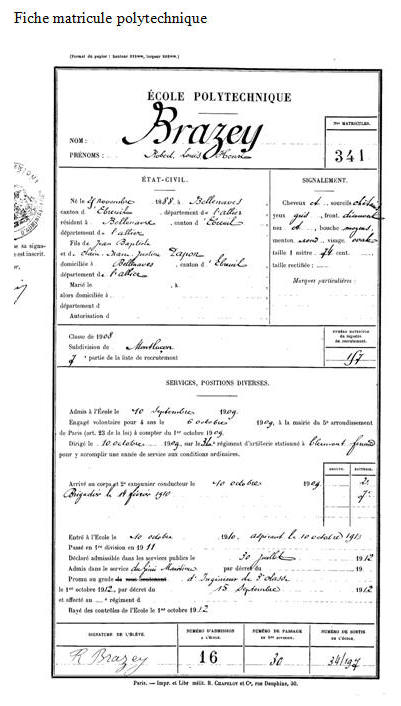 Fiche matricule polytechnique
(Format du papier : hauteur 311mm, largeur 211mm.)
ÉCOLE POLYTECHNIQUE
NOM : Brazey
PRÉNOMS : Robert, Louis, Henri
Nos MATRICULES.
341
ÉTAT-CIVIL.
Né le 25 novembre 1888 à Bellenaves
canton d Ebreuil, département de l'allier
résident à Bellenaves, canton d'Ebreuil
département de l'allier
Fils de Jean Baptiste
et de Marie Justine
domiciliés à Bellenaves, canton d'Ebreuil
département de l'allier
Marié le , à
alors domiciliée à
département d
Autorisation d
SIGNALEMENT.
Cheveux ch sourcils
yeux gris, front
nez , bouche moyenne
menton rond, visage ovale
Taille 1 mètre 74 cent.
taille rectifiée :
Marques particulières :
e sa signa-
est inscrit.
Classe de 1908
Subdivision de Montluçon
7e partie de la liste de recrutement
NUMÉRO MATRICULE
du registre
de recrutement.
157
SERVICES, POSITIONS DIVERSES.
Admis à l'École le 10 Septembre 1909.
Engagé volontaire pour 4 ans le 6 octobre 1909, à la mairie du 5e arrondissement
de Paris (art. 23 de la loi) à compter du 1er octobre 1909.
Dirigé le 10 octobre 1909, sur le 36e régiment d'artillerie stationné à Clermont ferrand
pour y accomplir une année de service aux conditions ordinaires.
Arrivé au corps et 2e canonnier conducteur le 10 octobre 1909
Brigadier le février 1910
Entré à l'École le 10 octobre 1910, aspirant le 10 octobre 1911
Passé en 1re division en 1911
Déclaré admissible dans les services publics le 30 juillet 1912
Admis dans le service du génie Maritime par décret du 19
Promu au grade de sous-lieutenant d'Ingénieur de 3e classe
le 1er octobre 1912, par décret du 15 Septembre 1912
et affecté au e régiment d
Rayé des contrôles de l'École le 1er octobre 1912
SIGNATURE DE L'ÉLÈVE.
NUMÉRO D'ADMISSION
à l'école.
NUMÉRO DE PASSAGE
en 1re division.
NUMÉRO DE SORTIE
de l'école.
R Brazey
16
30
34/197
Paris. — Impr. et Libr. milit. R. CHAPELOT et Cie, rue Dauphine, 30.